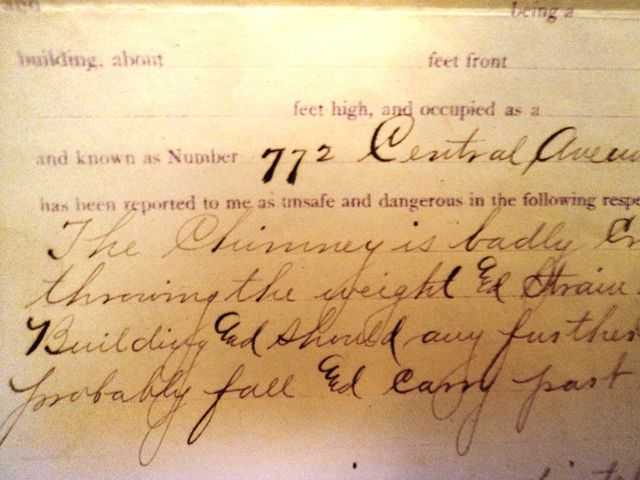 being a
building, about feet front
feet high, and occupied as a
and known as Number 772 Central Avenu
has been reported to me as unsafe and dangerous in the following respe
The Chimney is badly Cr
throwing the weight and Strain
Building and should any further
probably fall and carry part